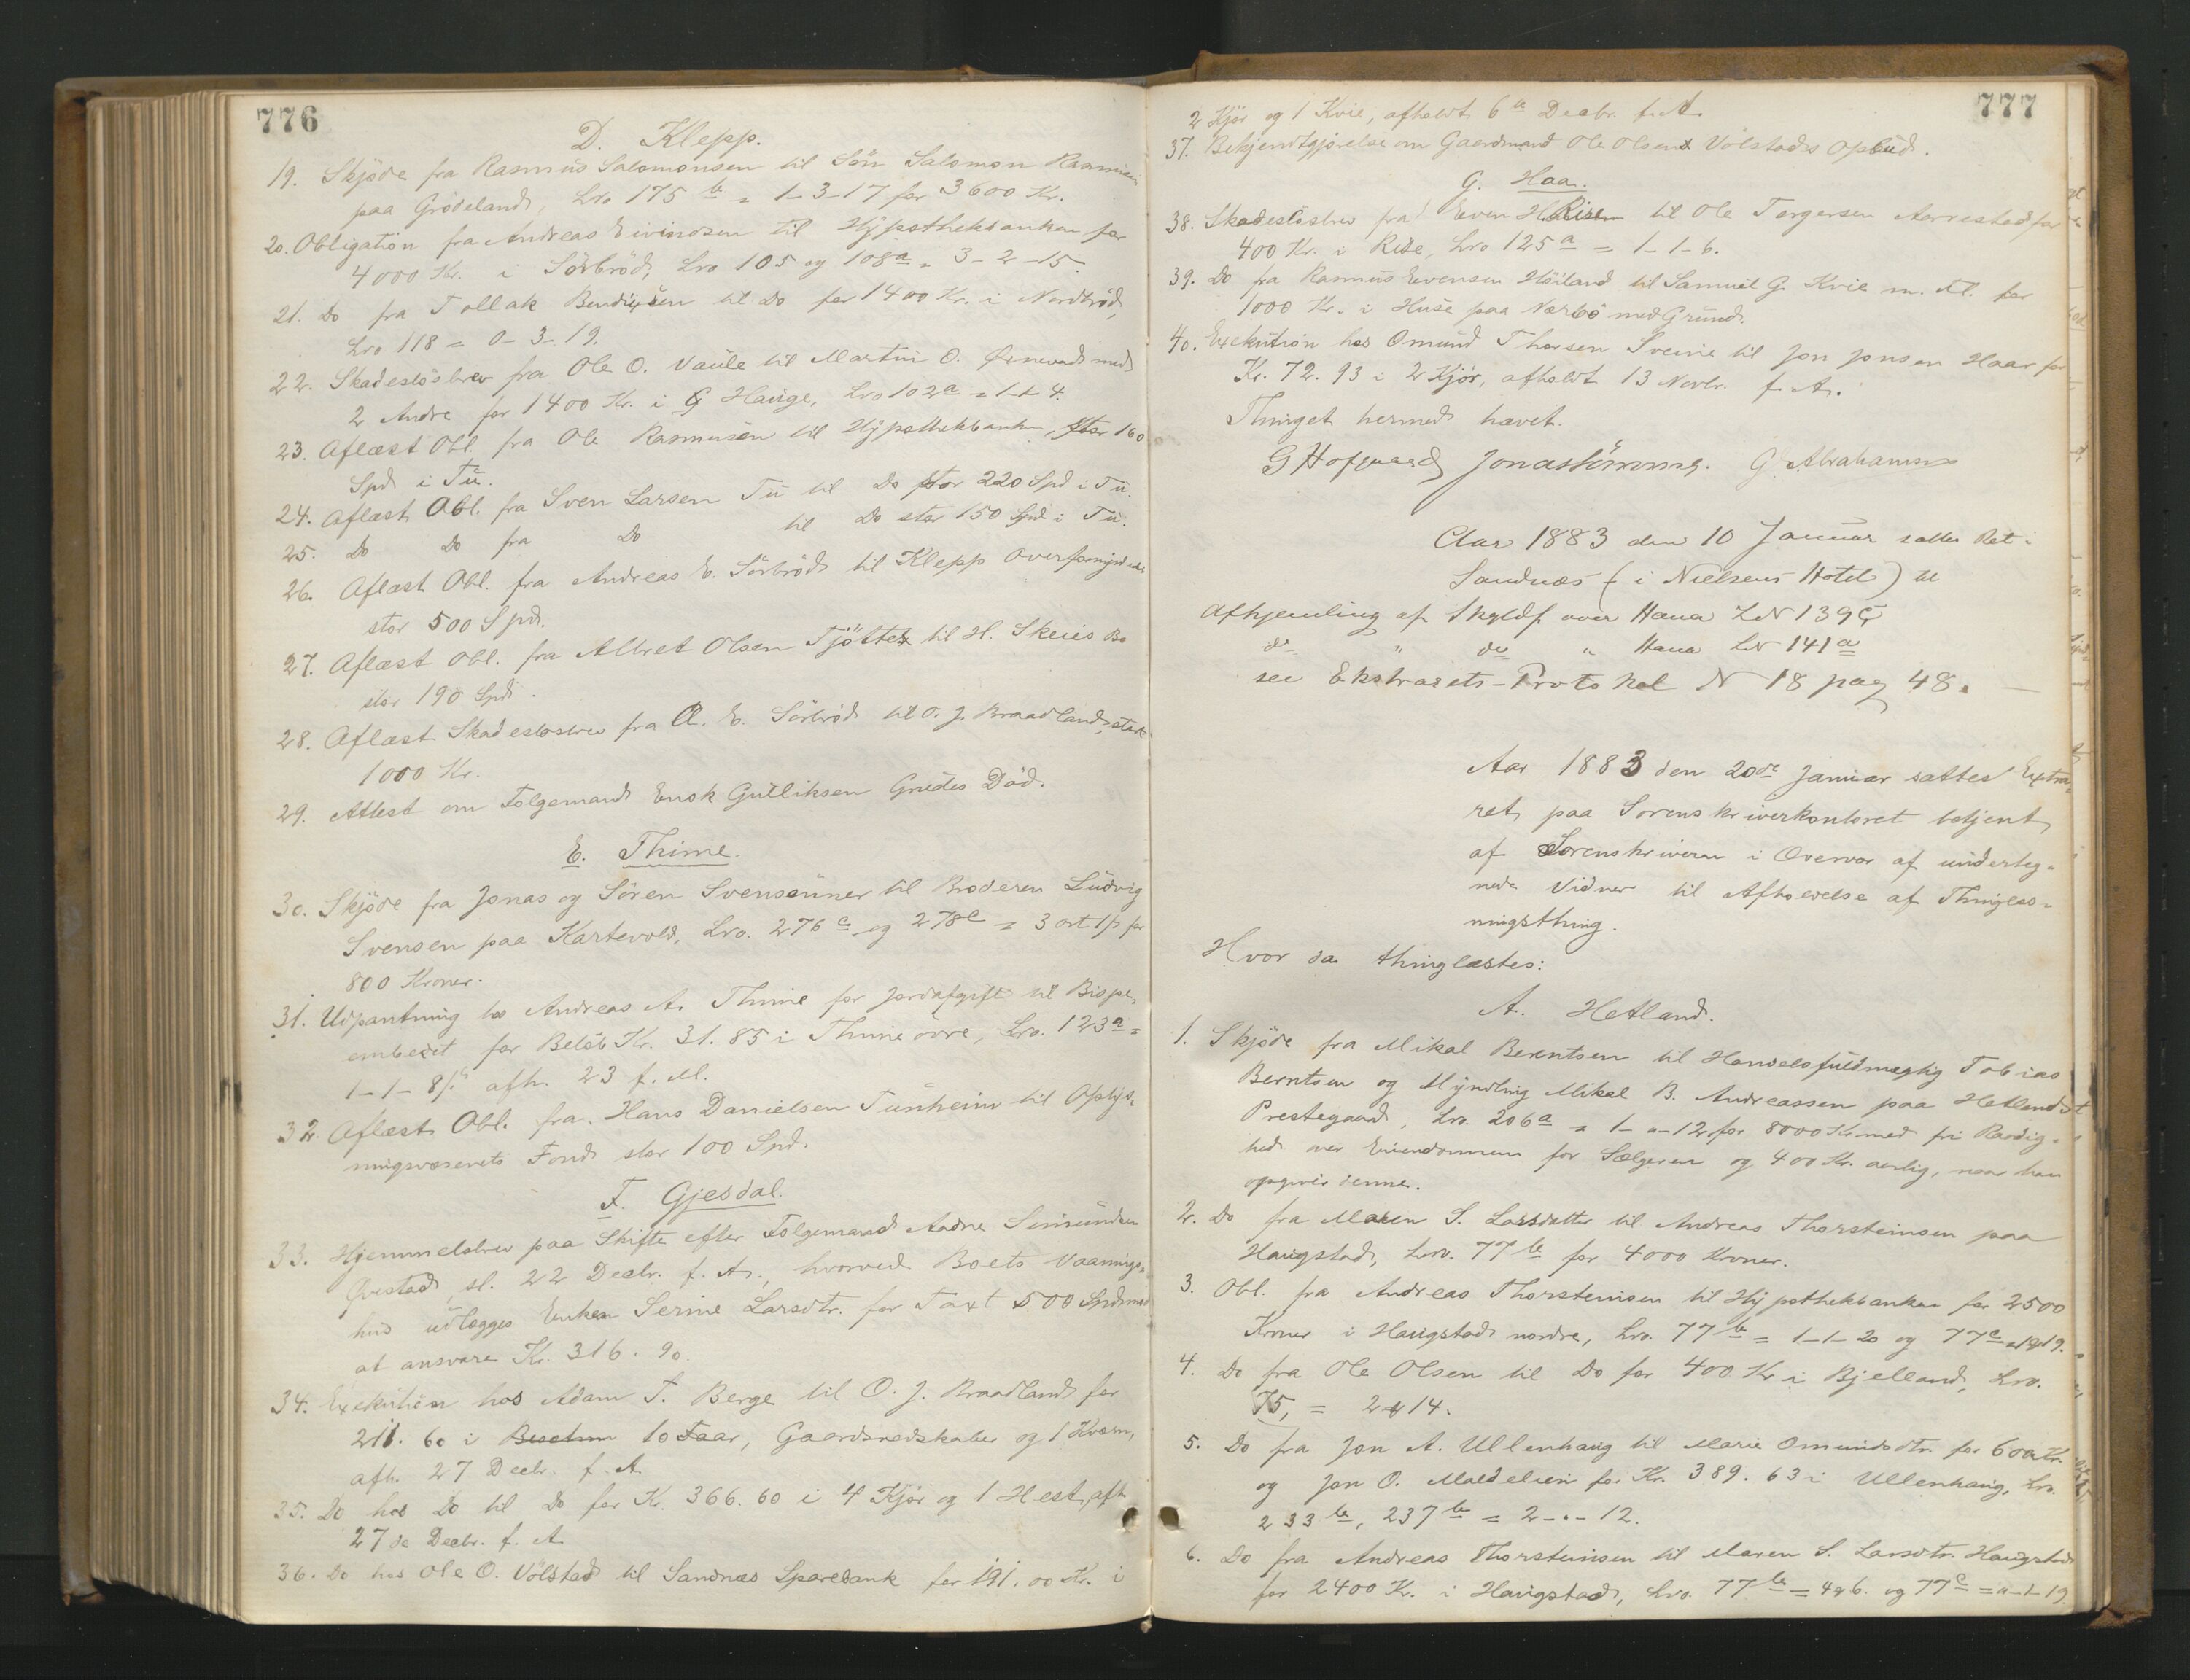 776
D. Klepp.
19. Skjöde fra Rasmus Salomonsen til Sön Salomon Rasmusen
paa Grödeland, Lro 175 b = 1-3-17 for 3600 Kr.
20. Obligation fra Andreas Eivindsen til Hypothekbanken for
4000 Kr. i Sörbröd, Lro 105 og 108a = 3-2-15.
21. Do fra Tollak Bendixsen til Do for 1400 Kr. i Nordbröd,
Lro 118 = 0-3-19.
22. Skadeslösbrev fra Ole O. Vaule til Martin O. Örnevad med
2 Andre for 1400 Kr. i G Hauge, Lro 102a = 1-1-4.
23. Aflæst Obl. fra Ole Rasmusen til Hypothekbanken, stor 160
Spd i Tu.
24. Aflæst Obl. fra Sven Larsen Tu til Do stor 220 Spd i Tu.
25. Do Do fra Do til Do stor 150 Spd i Tu.
26. Aflæst Obl. fra Andreas E. Sörbröd til Klepp Overformynderi
stor 500 Spd.
27. Aflæst Obl. fra Albret Olsen Tjötte til H. Skeies Bo
stor 190 Spd.
28. Aflæst Skadeslosbrev fra A. E. Sörbröd til O. J. Braadland, stort
1000 Kr.
29. Attest om Folgemand Enok Gulliksen Grudes Död.
E. Thime.
30. Skjöde fra Jonas og Sören Svensönner til Broderen Ludvig
Svensen paa Kartevold, Lro. 276 c og 278c = 3 ort 1 ß for
800 Kroner.
31. Udpantning hos Andreas A. Thime for Jordafgift til Bispe-
embedet for Belöb Kr. 31.85 i Thime övre, Lro. 123a =
1-1-8 ß afh. 23 f. M.
32. Aflæst Obl. fra Hans Danielsen Tunheim til Oplys-
ningsvæsenets Fond stor 100 Spd.
F. Gjesdal.
33. Hjemmelsbrev paa Skifte efter Folgemand Aadne Simundsen
Övestad, sl. 22 Decbr. f. A., hvorved Boets Vaanings-
hus udlægges Enken Serine Larsdtr. for Taxt 500 Spd mod
at ansvare Kr. 316.90.
34. Exekution hos Adam T. Berge til O. J. Braadland for
211.60 i 10 Faar, Gaardsredskaber og 1 Kværn,
afh. 27 Decbr. f. A.
35. Do hos Do til Do for Kr. 366.60 i 4 Kjör og 1 Hest, afh.
27de Decbr. f. A.
36. Do hos Ole O. Völstad til Sandnæs Sparebank for 191.00 Kr. i
777
2 Kjör og 1 Kvie, afholdt 6te Decbr. f. A.
37. Bekjendtgjörelse om Gaardmand Ole Olsens Völstads Opbud.
G. Haa.
38. Skadeslösbrev fra Even H Risen til Ole Torgersen Aarrestad for
400 Kr. i Rise, Lro 125 a = 1-1-6.
39. Do fra Rasmus Evensen Höiland til Samuel G. Kvie m. Fl. for
1000 Kr. i Huse paa Nærbö med Grund.
40. Exekution hos Omund Thorsen Sveine til Jon Jonsen Haar for
Kr. 72.93 i 2 Kjör, afholdt 13 Novbr. f. A.
Thinget hermed hævet.
G Hofgaard Jonas Lömmg. G. Abrahamsen
Aar 1883 den 10 Januar sattes Ret i
Sandnæs (i Nielsens Hotel) til
Afhjemling af Skyldf over Hana LN 139 c
do " do " Hana LN 141 a
see Ekstrarets-Protokol N 18 pag 48. —
Aar 1883 den 20de Januar sattes Extra-
ret paa Sorenskriverkontoret betjent
af Sorenskriveren i Overvær af underteg-
nede Vidner til Afholdelse af Thinglæs-
ningsthing.
Hvor da thinglæstes:
A. Hetland.
1. Skjöde fra Mikal Berentsen til Handelsfuldmægtig Tobias
Berntsen og Myndling Mikal B. Andreassen paa Hetland
Prestegaard, Lro. 206a = 1-"-12 for 8000 Kr med fri Raadig-
hed over Eiendommen for Sælgeren og 400 Kr. aarlig, naar han
opgiver denne.
2. Do fra Maren S. Larsdatter til Andreas Thorsteinsen paa
Haugstad, Lro. 77 b for 4000 Kroner.
3. Obl. fra Andreas Thorsteinsen til Hypothekbanken for 2500
Kroner i Haugstad nordre, Lro. 77 b = 1-1-20 og 77 c = 1-19.
4. Do fra Ole Olsen til Do for 400 Kr i Bjelland, Lro.
75, = 2 # 14.
5. Do fra Jon A. Ullenhaug til Marie Omundsdtr. for 600 Kr.
og Jon O. Maldelien for Kr. 389.63 i Ullenhaug, Lro.
233 b, 237 b = 2-"-12.
6. Do fra Andreas Thorsteinsen til Maren S. Larsdtr. Haugstad
for 2400 Kr. i Haugstad, Lro. 77 b = 4 # 6. og 77 c = "-1-19